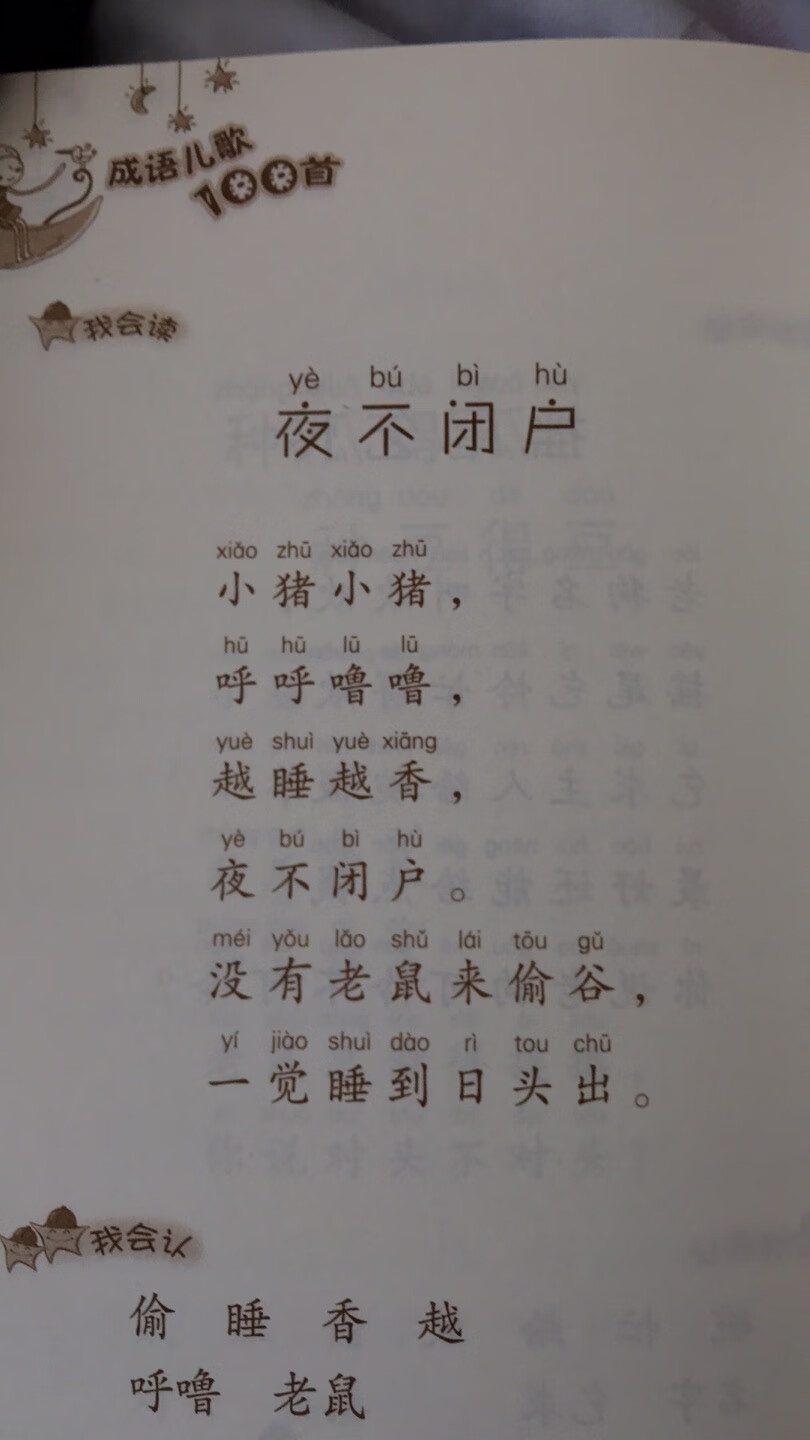 成语儿歌
100首
我会读
yè bú bì hù
夜不闭户
xiǎo zhū xiǎo zhū
小猪小猪，
hū hū lū lū
呼呼噜噜，
yuè shuì yuè xiāng
越睡越香，
yè bú bì hù
夜不闭户。
méi yǒu lǎo shǔ lái tōu gǔ
没有老鼠来偷谷，
yí jiào shuì dào rì tou chū
一觉睡到日头出。
我会认
偷 睡 香 越
呼噜 老鼠